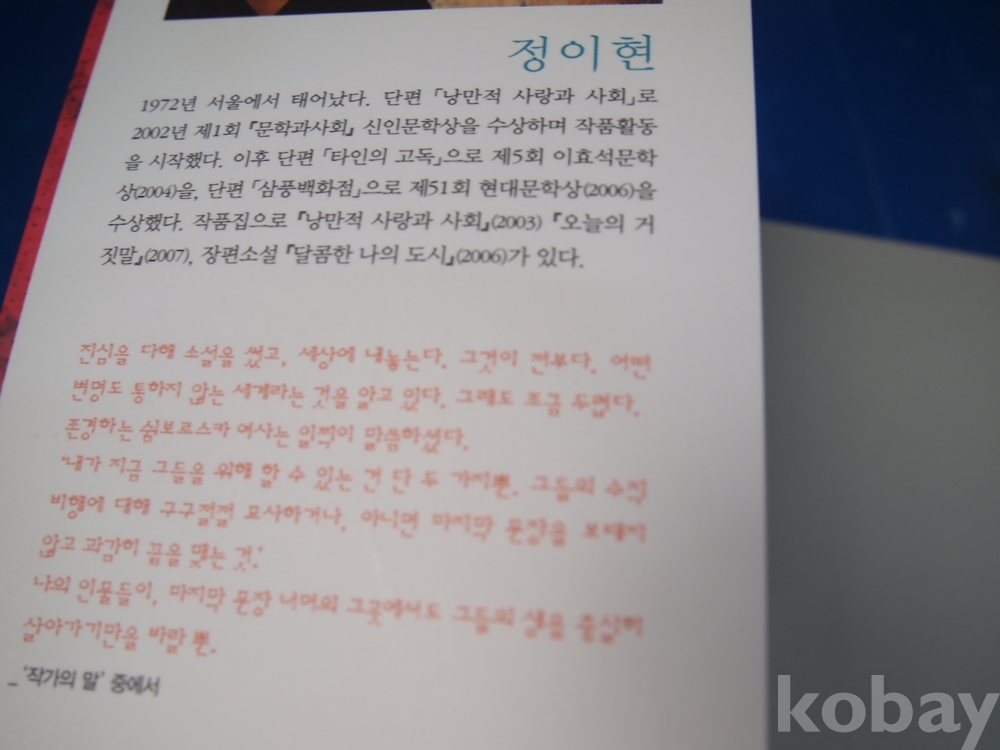 정이현
1972년 서울에서 태어났다. 단편 「낭만적 사랑과 사회」로
2002년 제1회 『문학과사회』 신인문학상을 수상하며 작품활동
을 시작했다. 이후 단편 「타인의 고독」으로 제5회 이효석문학
상(2004)을, 단편 「삼풍백화점」으로 제51회 현대문학상(2006)을
수상했다. 작품집으로 『낭만적 사랑과 사회』(2003) 『오늘의 거
짓말』(2007), 장편소설 『달콤한 나의 도시』(2006)가 있다.
진심을 다해 소설을 썼고, 세상에 내놓는다. 그것이 전부다. 어떤
변명도 통하지 않는 세계라는 것을 알고 있다. 그래도 조금 두렵다.
존경하는 쉼보르스카 여사는 일찍이 말씀하셨다.
'내가 지금 그들을 위해 할 수 있는 건 단 두 가지뿐. 그들의 수직
비행에 대해 구구절절 묘사하거나, 아니면 마지막 문장을 보태지
않고 과감히 끝을 맺는 것.'
나의 인물들이, 마지막 문장 너머의 그곳에서도 그들의 생을 충실히
살아가기만을 바랄 뿐.
_ '작가의 말' 중에서
kobay